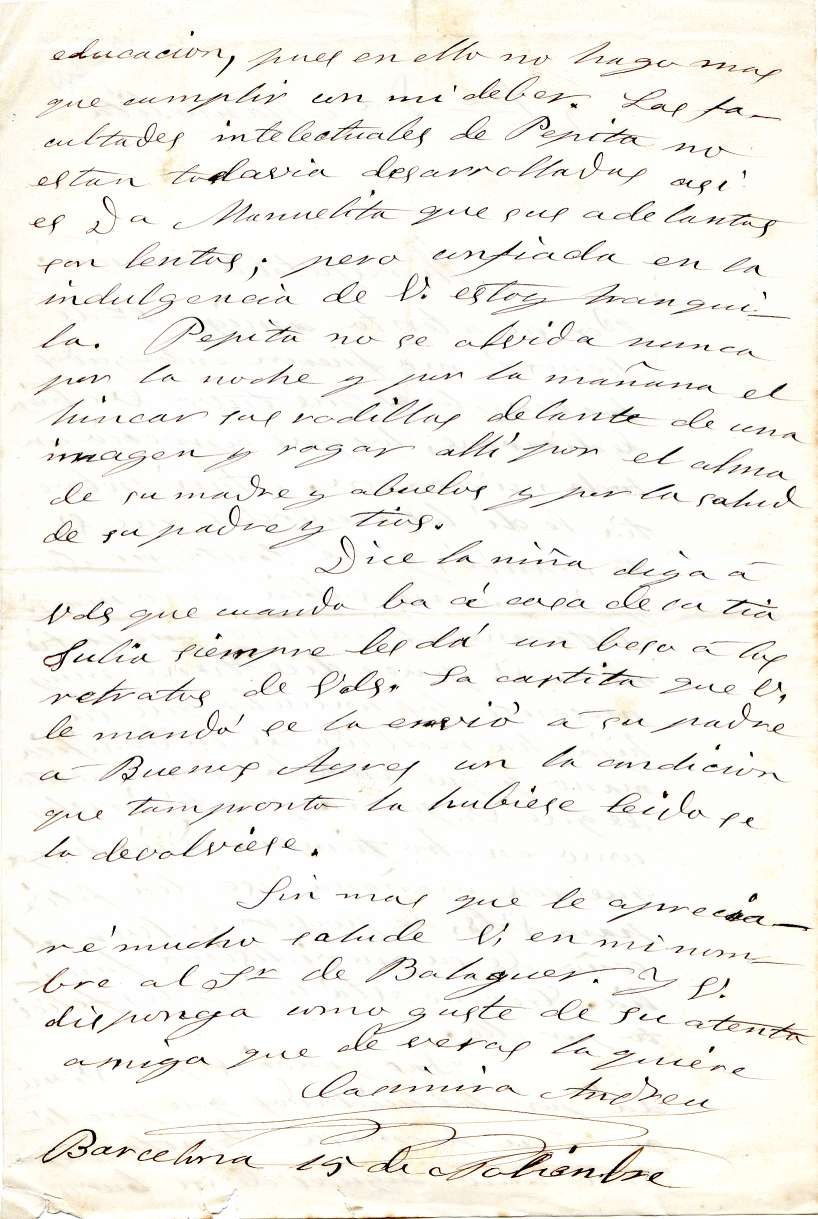 educacion, pues en ello no hago mas
que cumplir con mi deber. Las fa-
cultades intelectuales de Pepita no
estan todavia desarrolladas asi
es Da Manuelita que sus adelantos
son lentos; pero confiada en la
indulgencia de V. estoy tranqui-
la. Pepita no se olvida nunca
por la noche y por la mañana el
hincar sus rodillas delante de una
imagen y rogar allí por el alma
de su madre y abuelos y por la salud
de su padre y tios.
Dice la niña diga á
Vds que cuando ba á casa de su tia
Julia siempre les dá un beso á los
retratos de Vds. La cartita que V.
le mandó se la envió á su padre
á Buenos Ayres con la condicion
que tampronto la hubiese leido se
la devolviese.
Sin mas que le aprecia-
ré mucho salude V. en mi nom-
bre al Sr de Balaguer. Y V.
disponga como guste de su atenta
amiga que de veras la quiere
Casimira Andreu
Barcelona 15 de Nobiembre